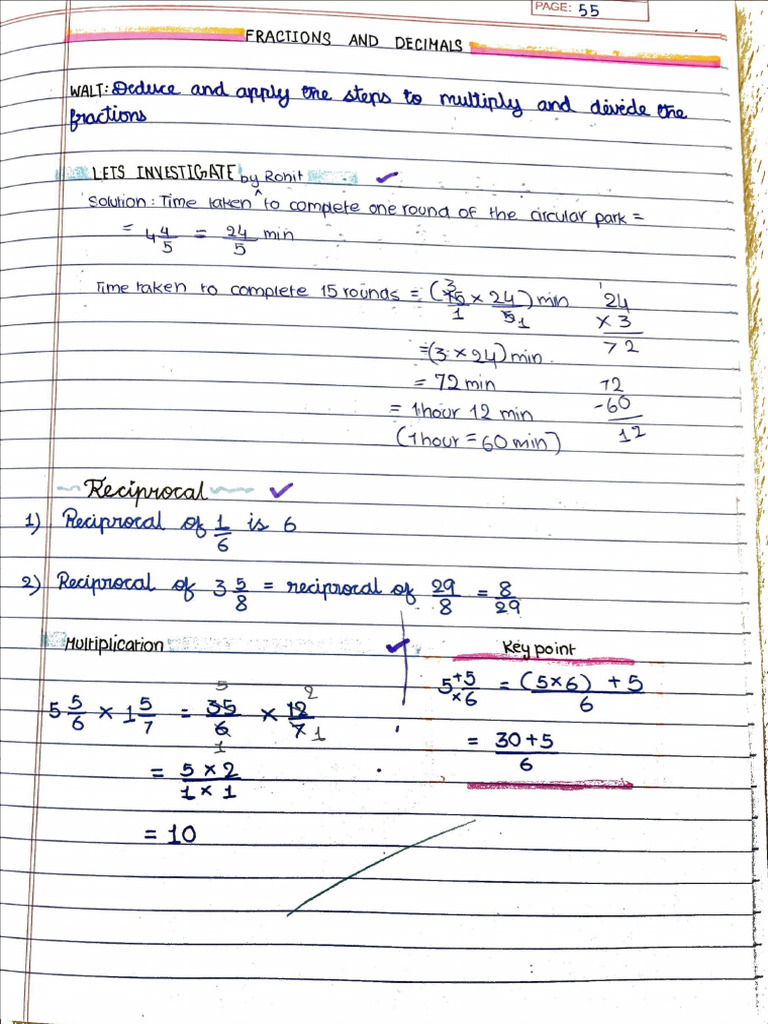 PAGE: 55
FRACTIONS AND DECIMALS
WALT: Deduce and apply the steps to multiply and divide the
fractions
LETS INVESTIGATE by Rohit ✓
Solution: Time taken ^ to complete one round of the circular park =
= 4 4/5 = 24/5 min
Time taken to complete 15 rounds = (15/1 × 24/5) min
3 1 1
= (3 × 24) min
= 72 min
= 1 hour 12 min
(1 hour = 60 min)
1
24
× 3
72
72
-60
12
Reciprocal ✓
1) Reciprocal of 1/6 is 6
2) Reciprocal of 3 5/8 = reciprocal of 29/8 = 8/29
Multiplication ✓
5 5/6 × 1 5/7 = 35/6 × 12/7
5 2
1 1
= 5 × 2 / 1 × 1
= 10
Key point
5 +5/×6 = (5×6) + 5 / 6
= 30+5 / 6